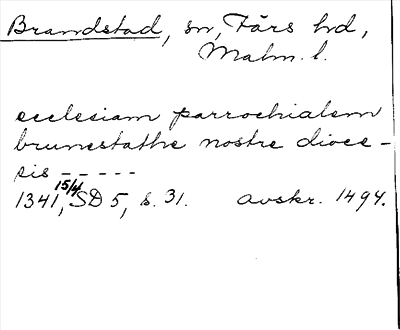 Brandstad, sn, Färs hd,
Malm. l.
ecclesiam parrochialem
brunestathe nostre dioce-
sis - - - - -
1341, 15/4 SD 5, s. 31. avskr. 1494.